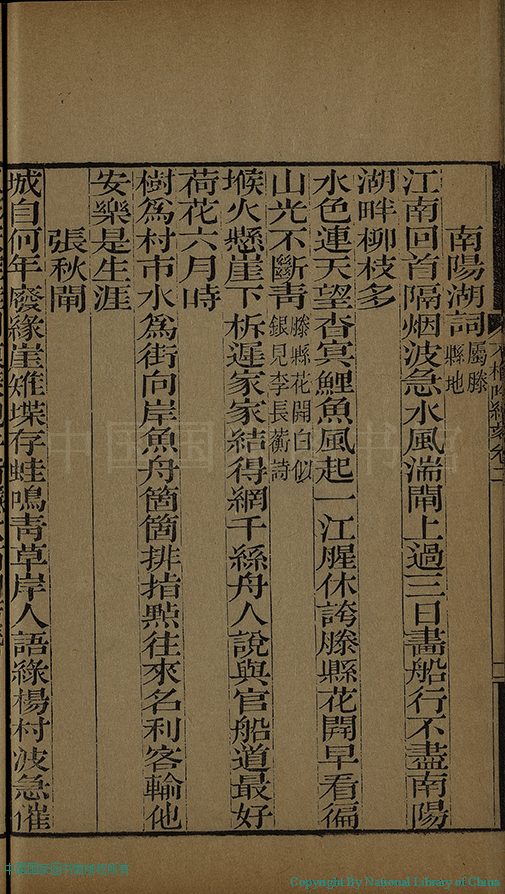 南陽湖詞屬滕縣地
江南回首隔烟波急水風湍閘上過三日畵船行不盡南陽
湖畔柳枝多
水色連天望杳冥鯉魚風起一江腥休誇滕縣花開早看徧
山光不斷靑滕縣花開白似銀見李長蘅詩
堠火懸崖下柝遲家家結得網千絲舟人說與官船道最好
荷花六月時
樹爲村市水爲街向岸魚舟箇箇排指點往來名利客輸他
安樂是生涯
張秋閘
城自何年廢緣崖雉堞存蛙鳴靑草岸人語綠楊村波急催
中国国家图书馆
Copyright By National Library of China